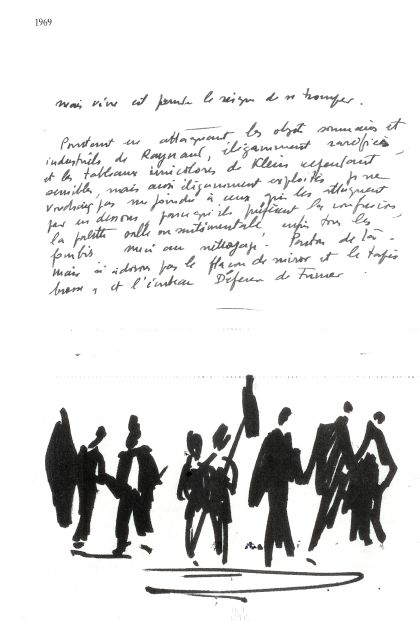 1969
mais vivre est prendre le risque de se tromper.
Pourtant en attaquant les objets sommaires et
industriels de Raynaud, élégamment sacrifiés,
et les tableaux unicolores de Klein cependant
sensibles, mais aussi élégamment exploités, je ne
voudrais pas me joindre à ceux qui les attaquent
par en dessous parce qu'ils préfèrent les confusions
la palette sale ou sentimentale enfin tous les
fourbis. Merci au nettoyage. Partons de là.
Mais n'adorons pas le flacon de miror et le tapis
brosse, et l'écriteau Défense de Fumer